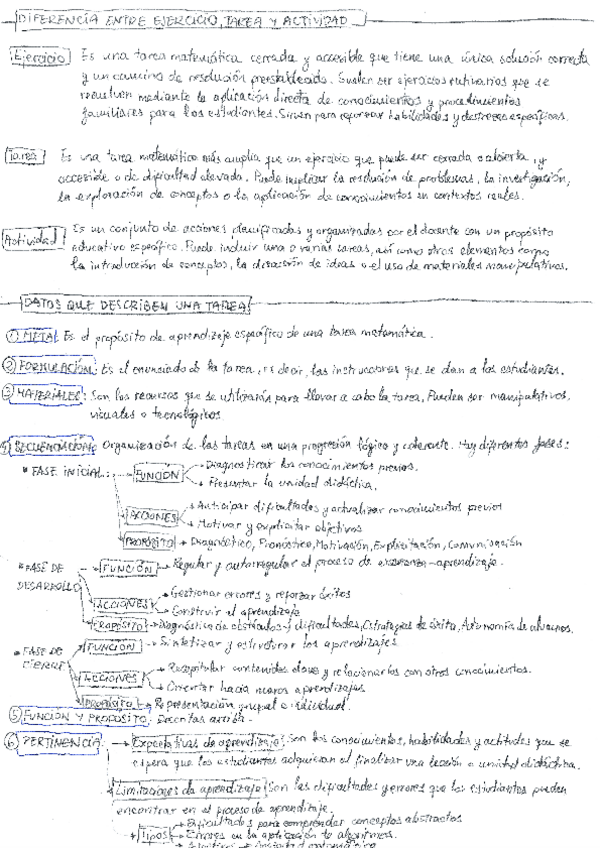 DIFERENCIA ENTRE EJERCICIO, TAREA Y ACTIVIDAD
Ejercicio Es una tarea matemática cerrada y accesible que tiene una única solución correcta
y un camino de resolución preestablecido. Suelen ser ejercicios rutinarios que se
resuelven mediante la aplicación directa de conocimientos y procedimientos
familiares para los estudiantes. Sirven para reforzar habilidades y destrezas específicas.
Tarea Es una tarea matemática más amplia que un ejercicio que puede ser cerrada o abierta, y
accesible o de dificultad elevada. Puede implicar la resolución de problemas, la investigación,
la exploración de conceptos o la aplicación de conocimientos en contextos reales.
Actividad Es un conjunto de acciones planificadas y organizadas por el docente con un propósito
educativo específico. Puede incluir una o varias tareas, así como otros elementos como
la introducción de conceptos, la discusión de ideas o el uso de materiales manipulativos.
DATOS QUE DESCRIBEN UNA TAREA
① META: Es el propósito de aprendizaje específico de una tarea matemática.
② FORMULACIÓN: Es el enunciado de la tarea, es decir, las instrucciones que se dan a los estudiantes.
③ MATERIALES: Son los recursos que se utilizarán para llevar a cabo la tarea. Pueden ser manipulativos,
visuales o tecnológicos
④ SECUENCIACIÓN: Organización de las tareas en una progresión lógica y coherente. Hay diferentes fases:
* FASE INICIAL: → FUNCIÓN → Diagnosticar los conocimientos previos.
→ Presentar la unidad didáctica.
ACCIONES → Anticipar dificultades y actualizar conocimientos previos
→ Motivar y explicitar objetivos
PROPÓSITO → Diagnóstico, Pronóstico, Motivación, Explicitación, Comunicación
* FASE DE DESARROLLO → FUNCIÓN → Regular y autorregular el proceso de enseñanza-aprendizaje.
ACCIONES → Gestionar errores y reforzar éxitos
→ Construir el aprendizaje
PROPÓSITO → Diagnóstico de obstáculos y dificultades, Estrategias de éxito, Autonomía de alumnos.
* FASE DE CIERRE → FUNCIÓN → Sintetizar y estructurar los aprendizajes
ACCIONES → Recapitular contenidos clave y relacionarlos con otros conocimientos.
→ Orientar hacia nuevos aprendizajes
PROPÓSITO → Representación grupal e individual.
⑤ FUNCIÓN Y PROPÓSITO: Descritas arriba.
⑥ PERTINENCIA: → Expectativas de aprendizaje: Son los conocimientos, habilidades y actitudes que se
espera que los estudiantes adquieran al finalizar una lección o unidad didáctica.
Limitaciones de aprendizaje: Son las dificultades y errores que los estudiantes pueden
encontrar en el proceso de aprendizaje.
Tipos → Dificultades para comprender conceptos abstractos
→ Errores en la aplicación de algoritmos.